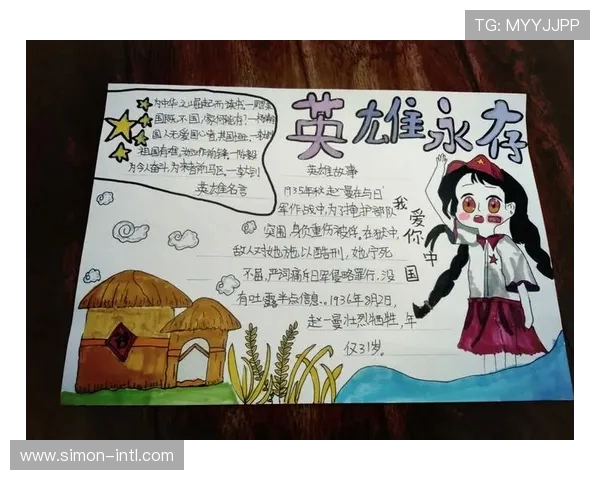 TG: MYYJJPP
英雄永存
为中华之崛起而读书—周恩来
国既不国,家何能存?—杨靖
国人无爱国心者,其国恒亡—李
祖国有难,
为今人奋斗,为来者
英雄名言
英雄故事
1935年秋,赵一曼在与日
军作战中,为了掩护部队
突围,身负重伤被俘。在狱中,
敌人对她施以酷刑,她宁死
不屈,严词痛斥日军侵略罪行,没
有吐露半点信息。1936年8月2日,
赵一曼壮烈牺牲,年
仅31岁。
我爱你中国
www.simon-intl.com